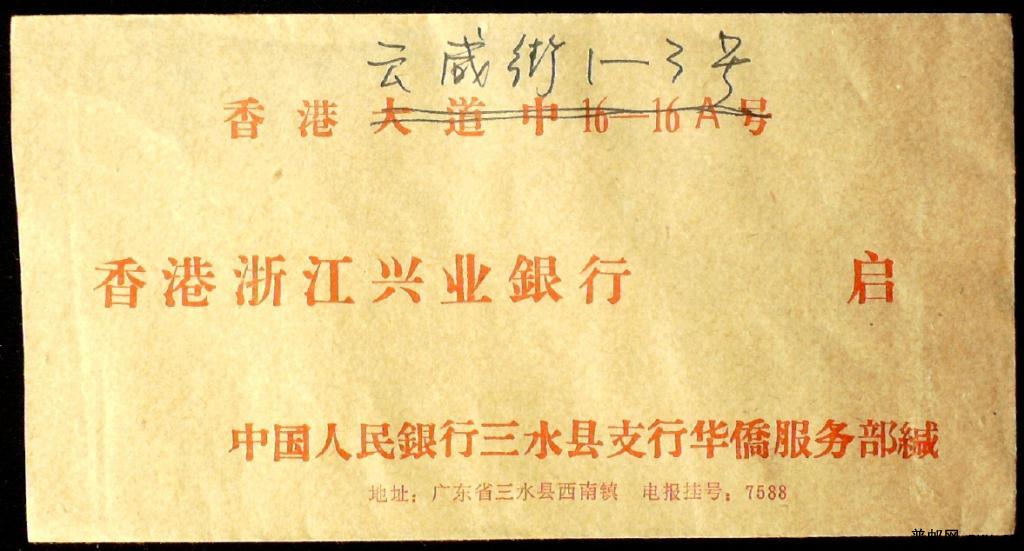 云咸街1—3号
香港大道中16—16A号
香港浙江兴业銀行 启
中国人民銀行三水县支行华僑服务部緘
地址：广东省三水县西南镇 电报挂号：7588
普邮网